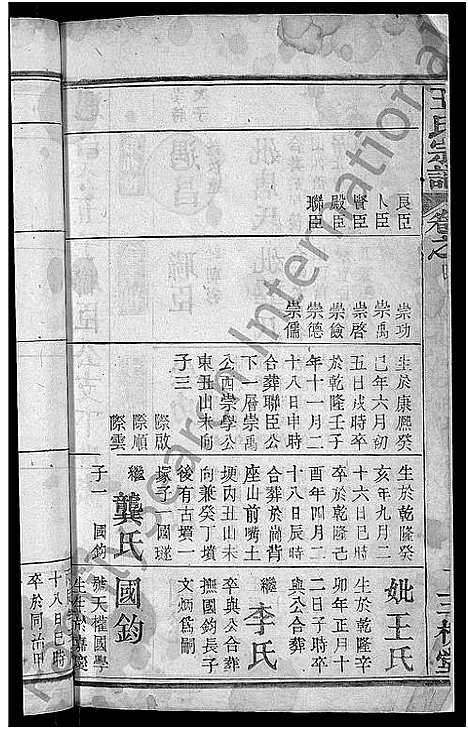 王氏宗譜
卷之
三槐堂
良臣
卜臣
賢臣
殿臣
聯臣
崇功
崇禹
崇啓
崇儉
崇德
崇儒
生於康熙癸
巳年六月初
五日戌時卒
於乾隆壬子
年十一月二
十八日申時
合葬聯臣公
下一層崇禹
公西崇學公
東丑山未向
子三
際啟
際順
際雲
生於乾隆癸
亥年九月二
十六日巳時
卒於乾隆己
酉年四月二
十八日辰時
合葬於崗背
座山前嘴土
埂內丑山未
向兼癸丁墳
後有古墳一
塚子一國璲
繼龔氏
子一 國鈞
妣王氏
生於乾隆辛
卯年正月十
二日子時卒
與公合葬
繼李氏
卒與公合葬
撫國鈞長子
文炳爲嗣
國鈞
號天權國學
生生於嘉慶
十八日巳時
卒於同治甲